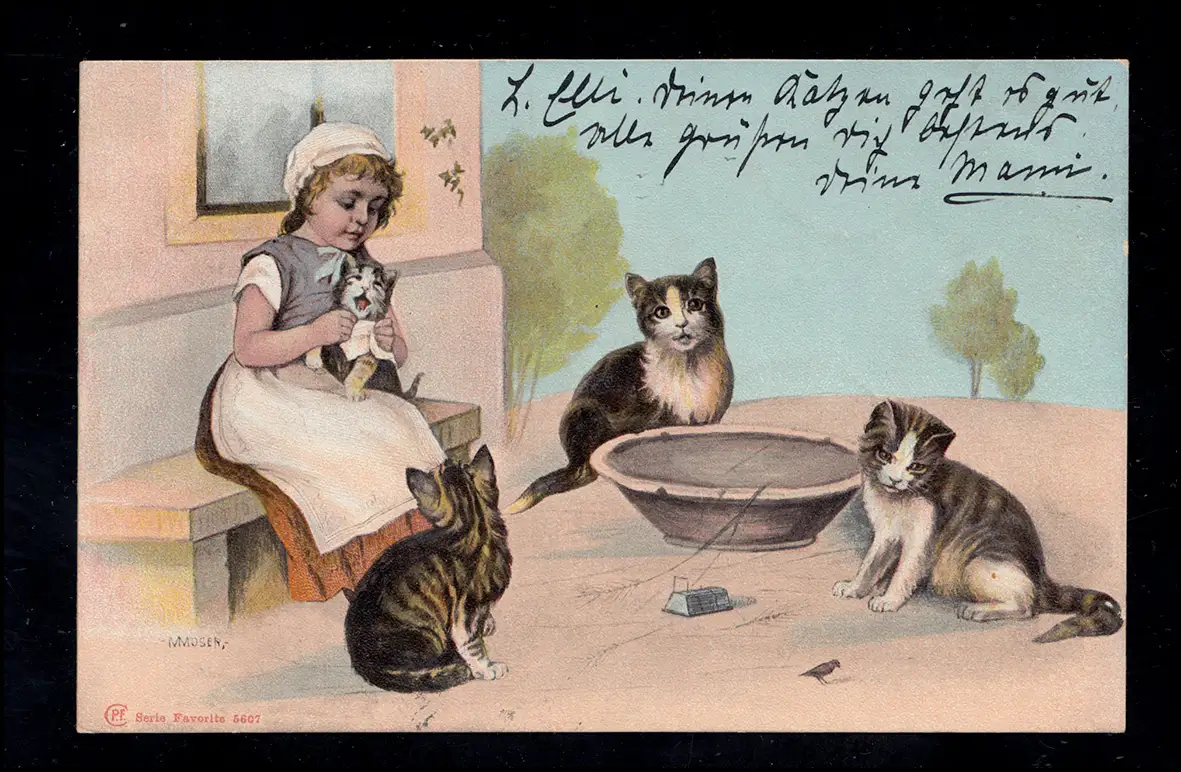 L. Elli. Deinen Katzen geht es gut,
alle grüßen dich bestens
deine Mami.
MMOSER,
CPF. Serie Favorite 5607